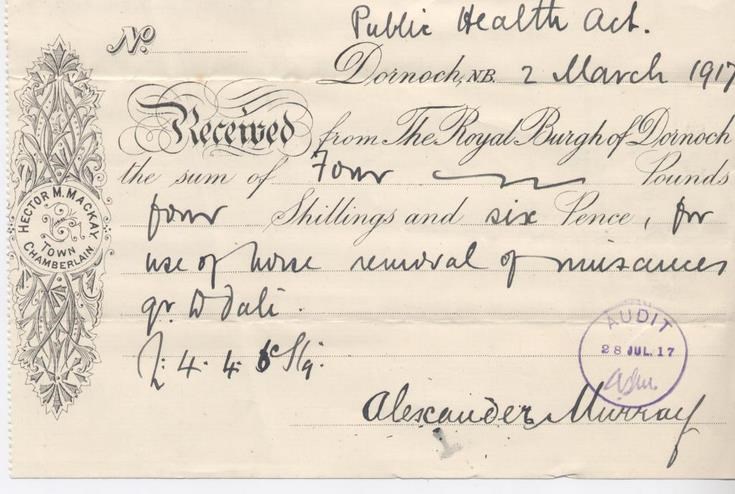 Public Health Act.
No.
Dornoch, NB. 2 March 1917
Received from The Royal Burgh of Dornoch
the sum of Four Pounds
four Shillings and six Pence, for
use of horse removal of nuisances
to date.
£4.4.6 Stg.
Alexander Murray
HECTOR M. MACKAY
TOWN
CHAMBERLAIN
AUDIT
28 JUL. 17